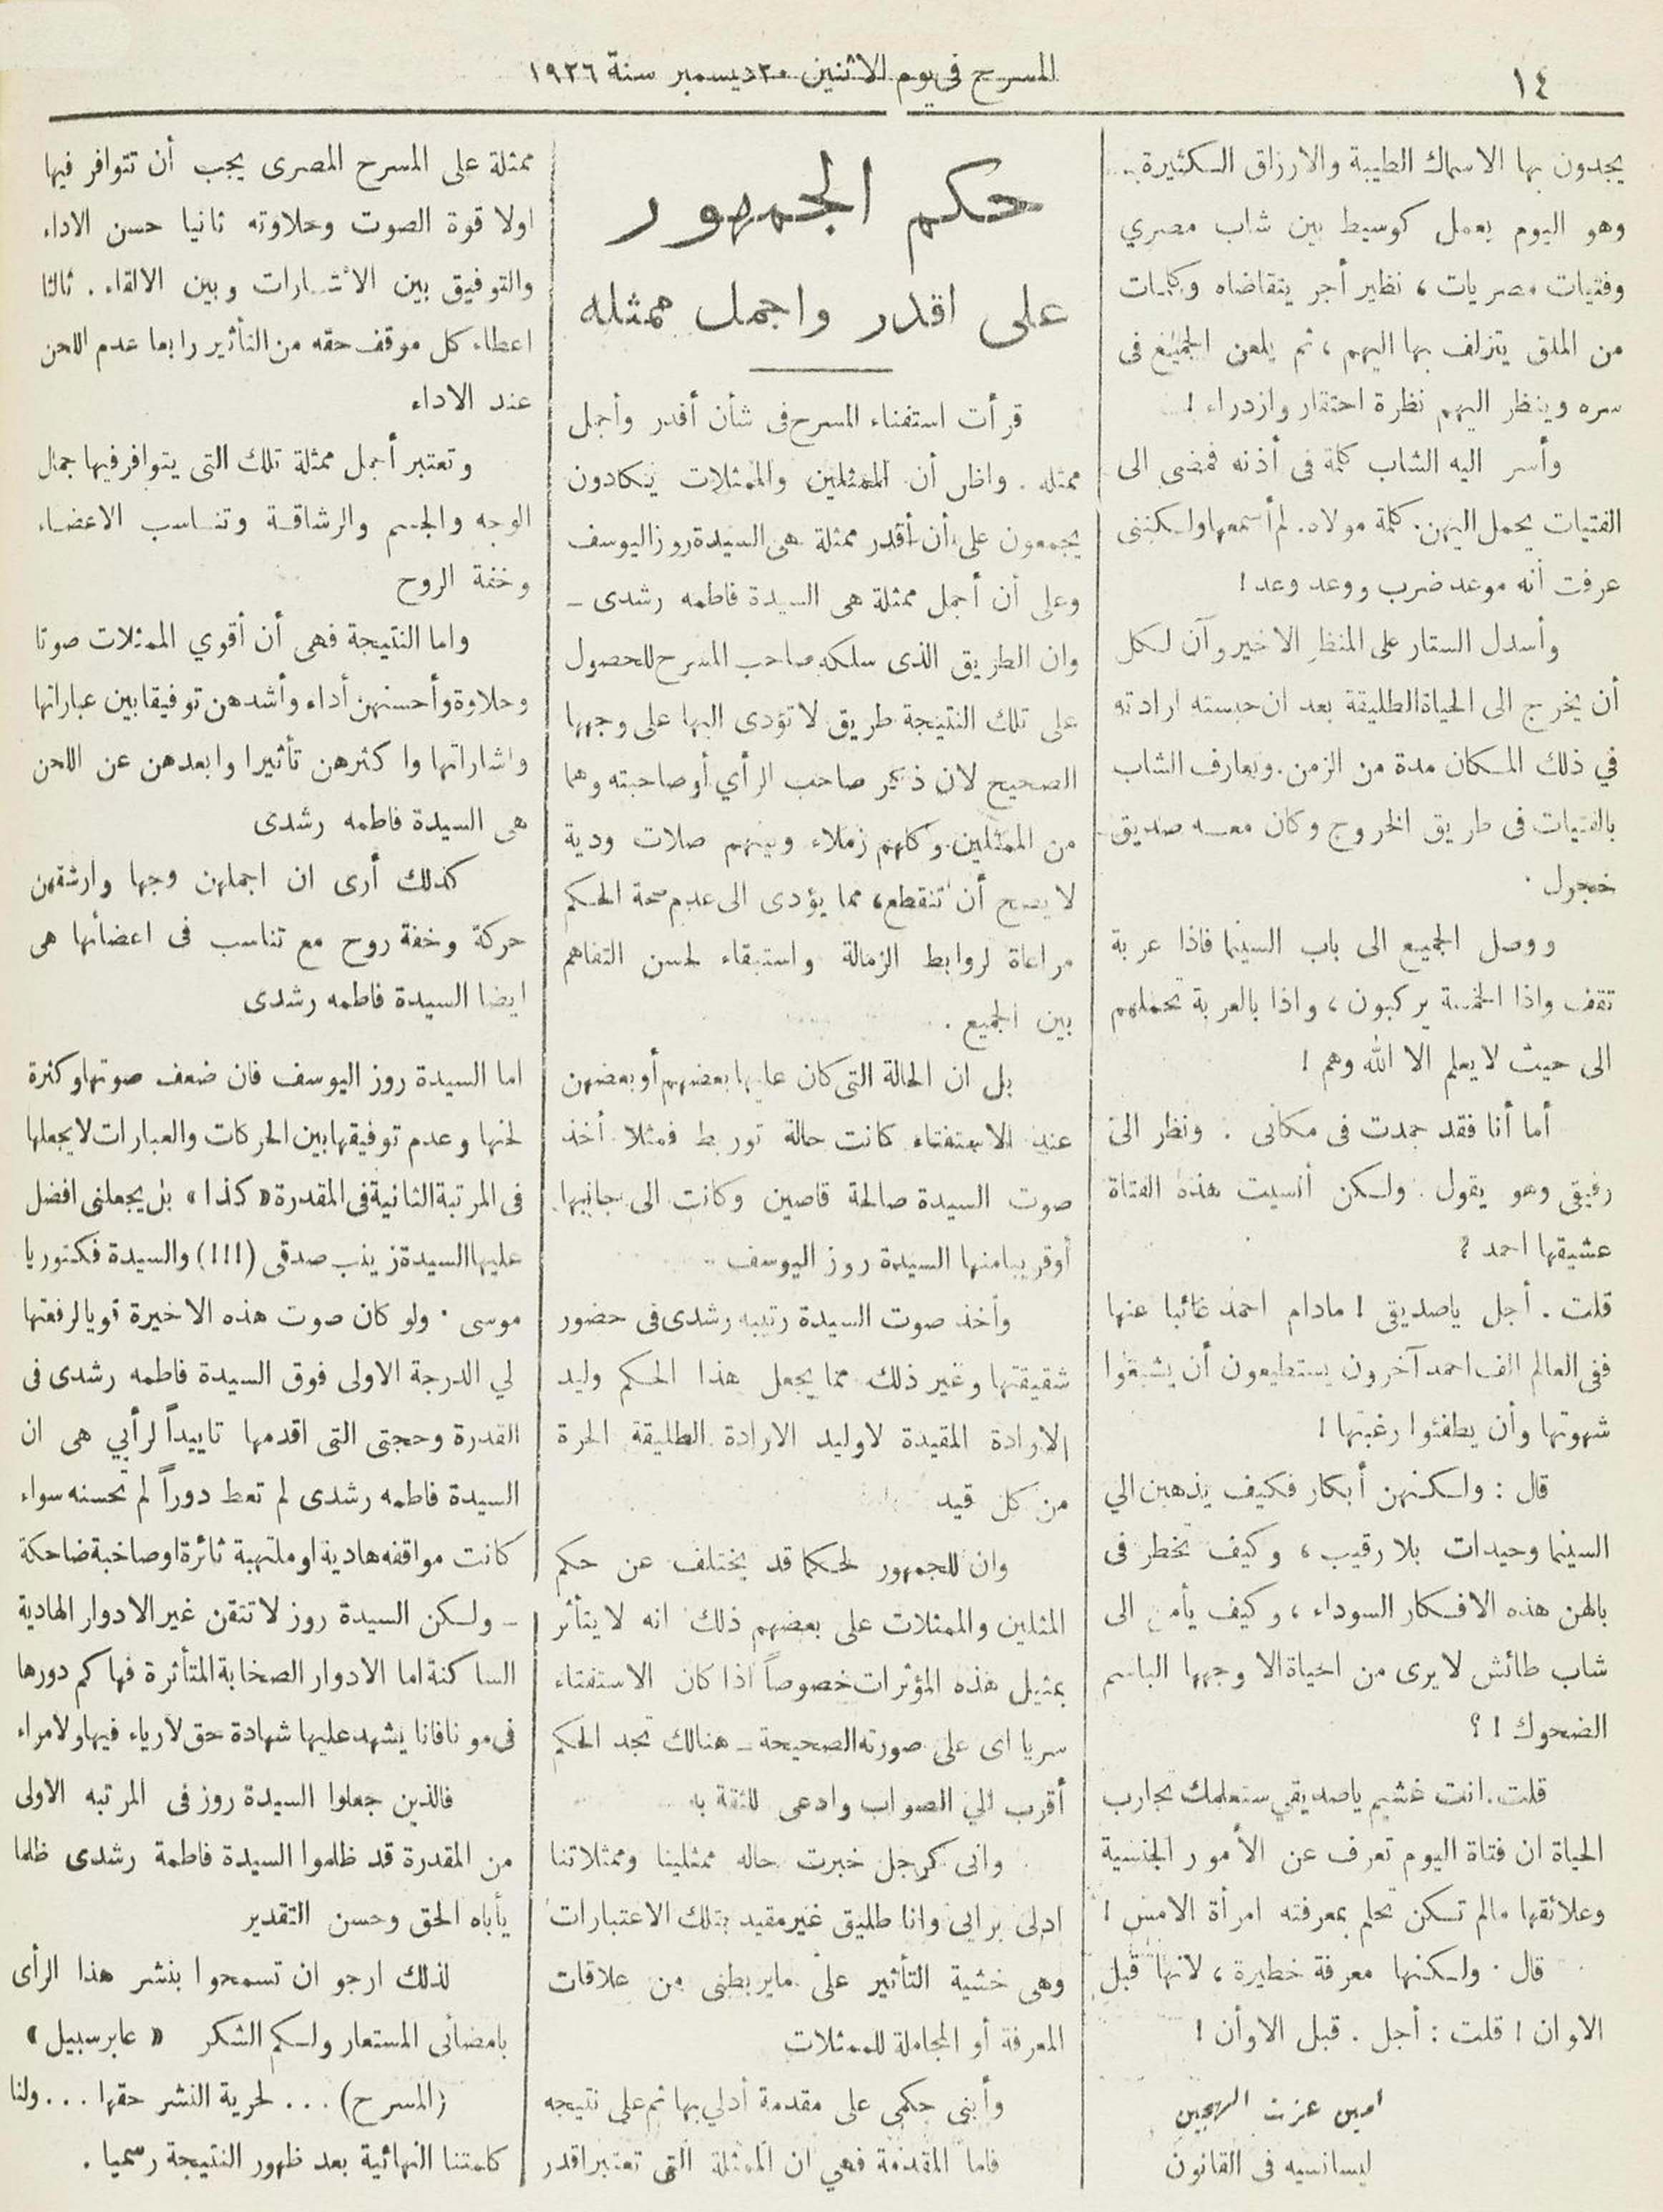 ١٤
المسرح في يوم الاثنين ٢٠ ديسمبر سنة ١٩٢٦
يجدون بها الاسماك الطيبة والارزاق الكثيرة.
وهو اليوم يعمل كوسيط بين شاب مصري
وفتيات مصريات، نظير أجر يتقاضاه وكلمات
من الملق يتزلف بها اليهم، ثم يلعن الجميع فى
سره وينظر اليهم نظرة احتقار وازدراء !
وأسر اليه الشاب كلمة فى أذنه فمضى الى
الفتيات يحمل اليهن كلمة مولاه. لم أسمعها ولكننى
عرفت أنه موعد ضرب ووعد وعد !
وأسدل الستار على المنظر الاخير وآن لكل
أن يخرج الى الحياة الطليقة بعد ان حبسته ارادته
في ذلك المكان مدة من الزمن. وتعارف الشاب
بالفتيات فى طريق الخروج وكان معه صديق
خجول .
ووصل الجميع الى باب السينما فاذا عربة
تقف واذا الخمسة يركبون، واذا بالعربة تحملهم
الى حيث لا يعلم الا الله وهم !
أما أنا فقد جمدت فى مكانى . ونظر الىّ
رفيقى وهو يقول . ولكن أنسيت هذه الفتاة
عشيقها احمد ؟
قلت . أجل ياصديقى ! مادام احمد غائبا عنها
ففى العالم الف احمد آخرون يستطيعون أن يشبعوا
شهوتها وأن يطفئوا رغبتها !
قال : ولكنهن أبكار فكيف يذهبن الي
السينما وحيدات بلا رقيب، وكيف تخطر فى
بالهن هذه الافكار السوداء، وكيف يأمن الى
شاب طائش لا يرى من الحياة الا وجهها الباسم
الضحوك ! ؟
قلت . انت غشيم ياصديقي ستعلمك تجارب
الحياة ان فتاة اليوم تعرف عن الأمور الجنسية
وعلائقها مالم تكن تحلم بمعرفته امرأة الامس !
قال . ولكنها معرفة خطيرة، لانها قبل
الاوان ! قلت : أجل . قبل الاوأن !
امين عزت الهجين
ليسانسيه فى القانون
حكم الجمهور
على اقدر واجمل ممثله
قرأت استفتاء المسرح فى شأن أقدر وأجمل
ممثله . واظن أن الممثلين والممثلات يتكادون
يجمعون على أن أقدر ممثلة هى السيدة روز اليوسف
وعلى أن أجمل ممثلة هى السيدة فاطمه رشدى –
وان الطريق الذى سلكه صاحب المسرح للحصول
على تلك النتيجة طريق لا تؤدى اليها على وجهها
الصحيح لان ذكر صاحب الرأي أو صاحبته وهما
من الممثلين وكلهم زملاء وبينهم صلات ودية
لا يصح أن تنقطع، مما يؤدى الى عدم صحة الحكم
مراعاة لروابط الزمالة واستبقاء لحسن التفاهم
بين الجميع .
بل ان الحالة التى كان عليها بعضهم أو بعضهن
عند الاستفتاء كانت حالة تورط فمثلا أخذ
صوت السيدة صالحة قاصين وكانت الى جانبها
أو قريبا منها السيدة روز اليوسف
وأخذ صوت السيدة رتيبه رشدى فى حضور
شقيقتها وغير ذلك مما يجعل هذا الحكم وليد
الارادة المقيدة لا وليد الارادة الطليقة الحرة
من كل قيد
وان للجمهور لحكما قد يختلف عن حكم
المثلين والممثلات على بعضهم ذلك انه لا يتأثر
بمثيل هذه المؤثرات خصوصاً اذا كان الاستفتاء
سريا اى على صورته الصحيحة – هنالك تجد الحكم
أقرب الي الصواب وادعى للثقة به
وانى كرجل خبرت حاله ممثلينا وممثلاتنا
ادلى برايى وانا طليق غير مقيد بتلك الاعتبارات
وهى خشية التأثير على مايربطنى من علاقات
المعرفة أو المجاملة للممثلات
وأبنى حكمى على مقدمة أدلي بها ثم على نتيجه
فاما المقدمة فهي ان الممثلة التى تعتبر اقدر
ممثلة على المسرح المصرى يجب أن تتوافر فيها
اولا قوة الصوت وحلاوته ثانيا حسن الاداء
والتوفيق بين الاشارات وبين الالقاء . ثالثا
اعطاء كل موقف حقه من التأثير رابعا عدم اللحن
عند الاداء
وتعتبر أجمل ممثلة تلك التى يتوافر فيها جمال
الوجه والجسم والرشاقة وتناسب الاعضاء
وخفة الروح
واما النتيجة فهى أن أقوي الممثلات صوتا
وحلاوة وأحسنهن أداء وأشدهن توفيقا بين عباراتها
واشاراتها واكثرهن تأثيرا وابعدهن عن اللحن
هى السيدة فاطمه رشدى
كذلك أرى ان اجملهن وجها وارشقهن
حركة وخفة روح مع تناسب فى اعضائها هى
ايضا السيدة فاطمه رشدى
اما السيدة روز اليوسف فان ضعف صوتها وكثرة
لحنها وعدم توفيقها بين الحركات والعبارات لا يجعلها
فى المرتبة الثانية فى المقدرة «كذا» بل يجعلنى افضل
عليها السيدة زينب صدقى (!!!) والسيدة فكتوريا
موسى . ولو كان صوت هذه الاخيرة قويا لرفعتها
لي الدرجة الاولى فوق السيدة فاطمه رشدى فى
القدرة وحجتى التى اقدمها تاييداً لرأيي هى ان
السيدة فاطمه رشدى لم تعط دوراً لم تحسنه سواء
كانت مواقفه هادية او ملتهبة ثائرة او صاخبة ضاحكة
– ولكن السيدة روز لا تتقن غير الادوار الهادية
الساكنة اما الادوار الصخابة المتأثرة فهاكم دورها
فى مونافانا يشهد عليها شهادة حق لا رياء فيها ولا مراء
فالذين جعلوا السيدة روز فى المرتبه الاولى
من المقدرة قد ظلموا السيدة فاطمة رشدى ظلما
يأباه الحق وحسن التقدير
لذلك ارجو ان تسمحوا بنشر هذا الرأى
بامضائى المستعار ولكم الشكر «عابر سبيل»
(المسرح) ... لحرية النشر حقها ... ولنا
كلمتنا النهائية بعد ظهور النتيجة رسميا .